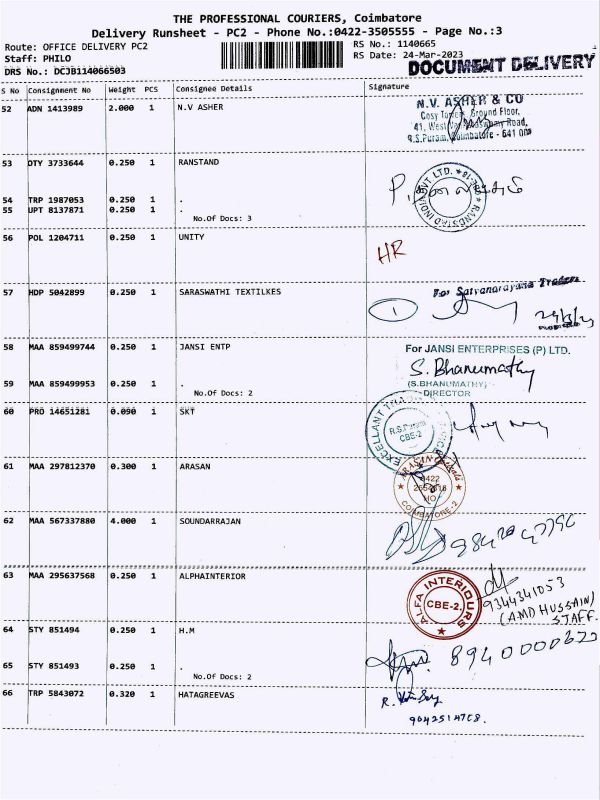 THE PROFESSIONAL COURIERS, Coimbatore
Delivery Runsheet - PC2 - Phone No.:0422-3505555 - Page No.:3
Route: OFFICE DELIVERY PC2
Staff: PHILO
DRS No.: DCJB114066503
RS No.: 1140665
RS Date: 24-Mar-2023
DOCUMENT DELIVERY
S No Consignment No Weight PCS Consignee Details Signature
52 ADN 1413989 2.000 1 N.V ASHER
N.V. ASHER & CO
Cosy Tower, Ground Floor,
41, West Road,
R.S.Puram, Coimbatore - 641 002
53 DTY 3733644 0.250 1 RANSTAND
RANDSTAD INDIA PVT LTD.
54 TRP 1987053 0.250 1 .
55 UPT 8137871 0.250 1 .
No.Of Docs: 3
56 POL 1204711 0.250 1 UNITY
HR
57 HDP 5042899 0.250 1 SARASWATHI TEXTILKES
For Satyanarayana Traders
1
58 MAA 859499744 0.250 1 JANSI ENTP
For JANSI ENTERPRISES (P) LTD.
S. Bhanumathy
(S.BHANUMATHY)
DIRECTOR
59 MAA 859499953 0.250 1 .
No.Of Docs: 2
60 PRO 14651281 0.090 1 SKT
EXCELLANT
R.S.Puram
CBE-2
61 MAA 297812370 0.300 1 ARASAN
ARASAN
0422
HO
COIMBATORE-2
62 MAA 567337880 4.000 1 SOUNDARRAJAN
63 MAA 295637568 0.250 1 ALPHAINTERIOR
ALFA INTERIOURS
CBE-2.
9344341053
(A.MD HUSSAIN)
STAFF.
64 STY 851494 0.250 1 H.M
65 STY 851493 0.250 1 .
No.Of Docs: 2
66 TRP 5843072 0.320 1 HATAGREEVAS
R.